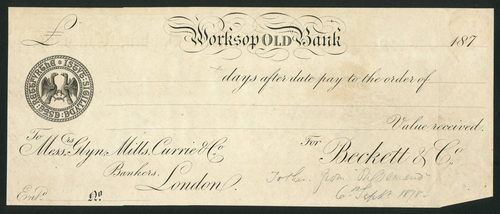 £ Worksop OLD Bank 187
days after date pay to the order of
Value received.
To Messrs Glyn, Mills, Currie & Co. For Beckett & Co.
Bankers,
London.
Entd. No.
from
6th Septr 1878